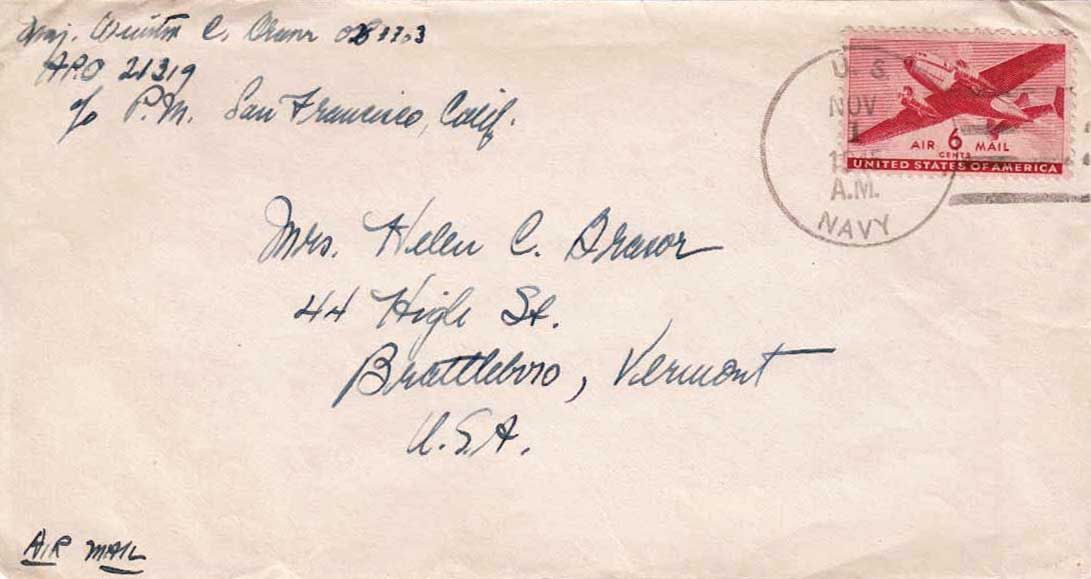 Maj. C.
APO 21219
c/o P.M. San Francisco, Calif.
U. S.
NOV
1
A.M.
NAVY
AIR 6 MAIL
CENTS
UNITED STATES OF AMERICA
Mrs. Helen C. Brasor
44 High St.
Brattleboro, Vermont
U.S.A.
AIR MAIL